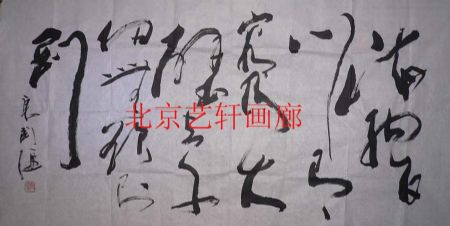 海納百
川有
容乃大
壁立千
仞無欲則
剛
北京艺轩画廊